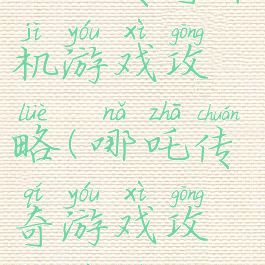 jī yóu xì gōng
机游戏攻
lüè nǎ zhā chuán
略(哪吒传
qí yóu xì gōng
奇游戏攻